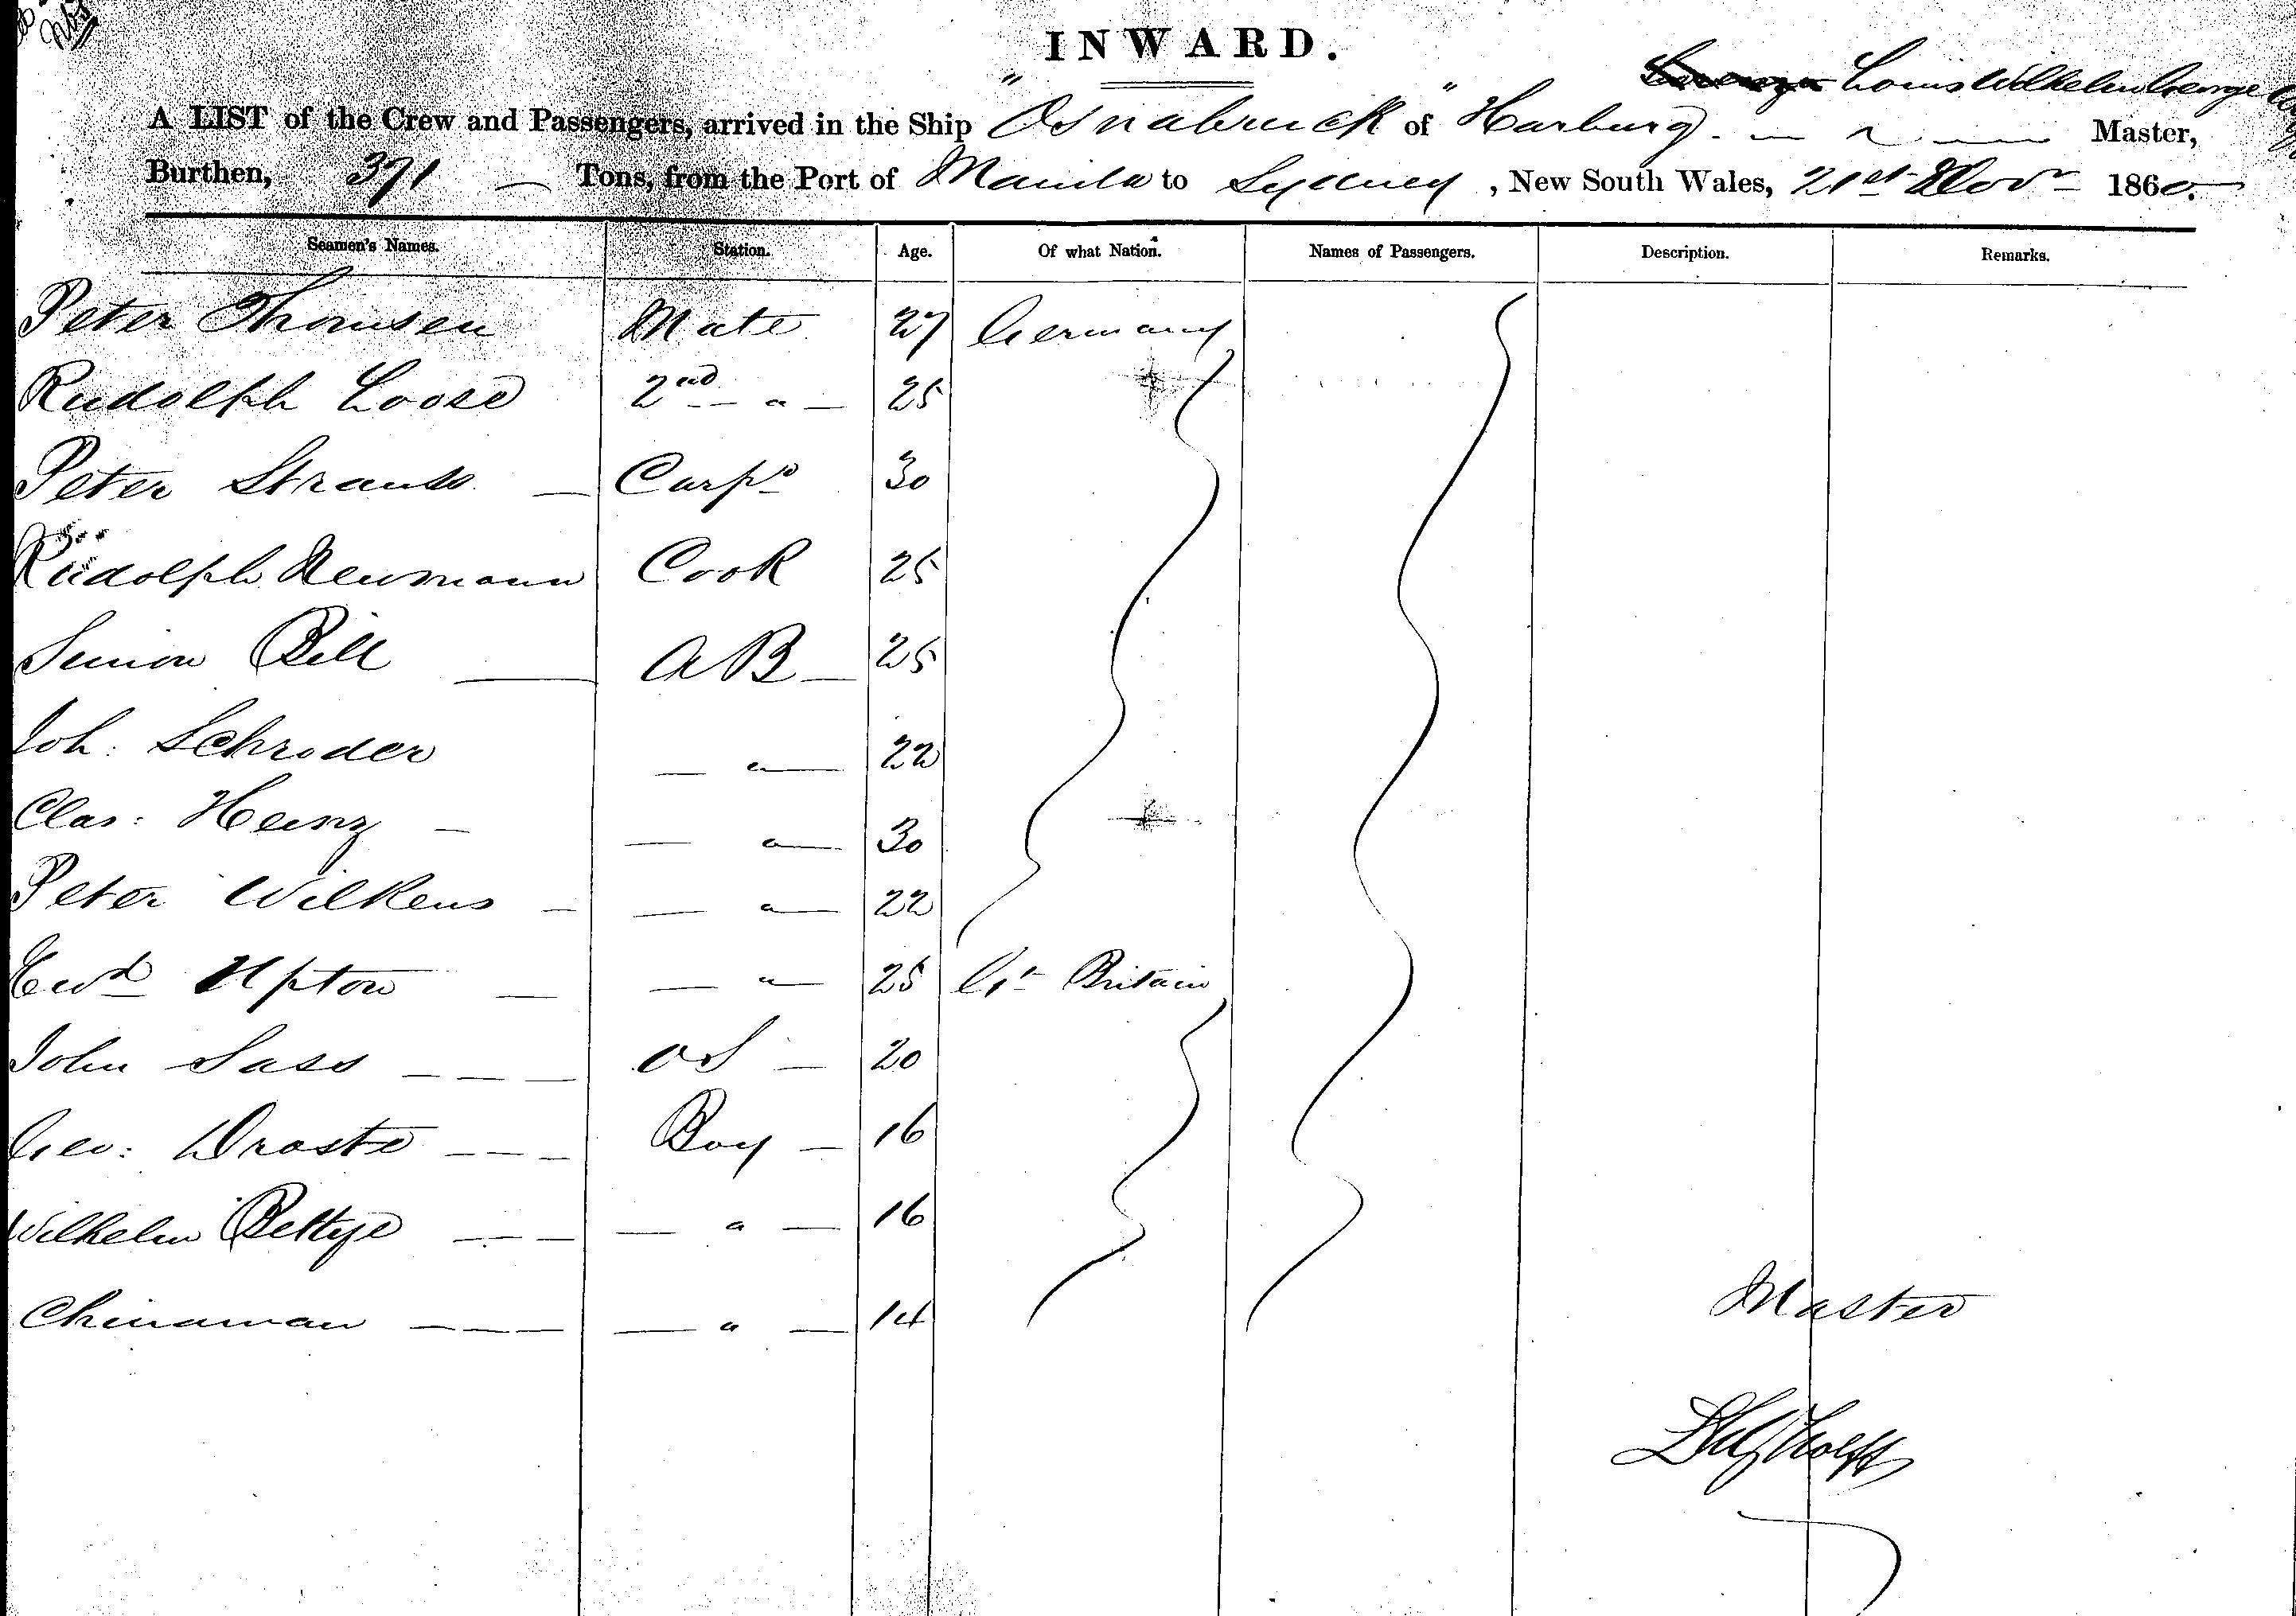 INWARD.
Louis Wilhelm George
A LIST of the Crew and Passengers, arrived in the Ship "Osnabruck" of Harburg. Master,
Burthen, 371 Tons, from the Port of Manila to Sydney, New South Wales, 21st Novr 1860.
Seamen's Names. Station. Age. Of what Nation. Names of Passengers. Description. Remarks.
Peter Thomsen Mate 27 Germany
Rudolph Loose 2nd " 25
Peter Strauss Carpr 30
Rudolph Neumann Cook 25
Simon Bill AB 25
Joh: Schroder " 22
Clas: Heinz " 30
Peter Wilkens " 22
Edwd Upton " 25 Gt Britain
John Sass OS 20
Geo: Droste Boy 16
Wilhelm Bettye " 16
Chinaman " 14
Master
Wolff